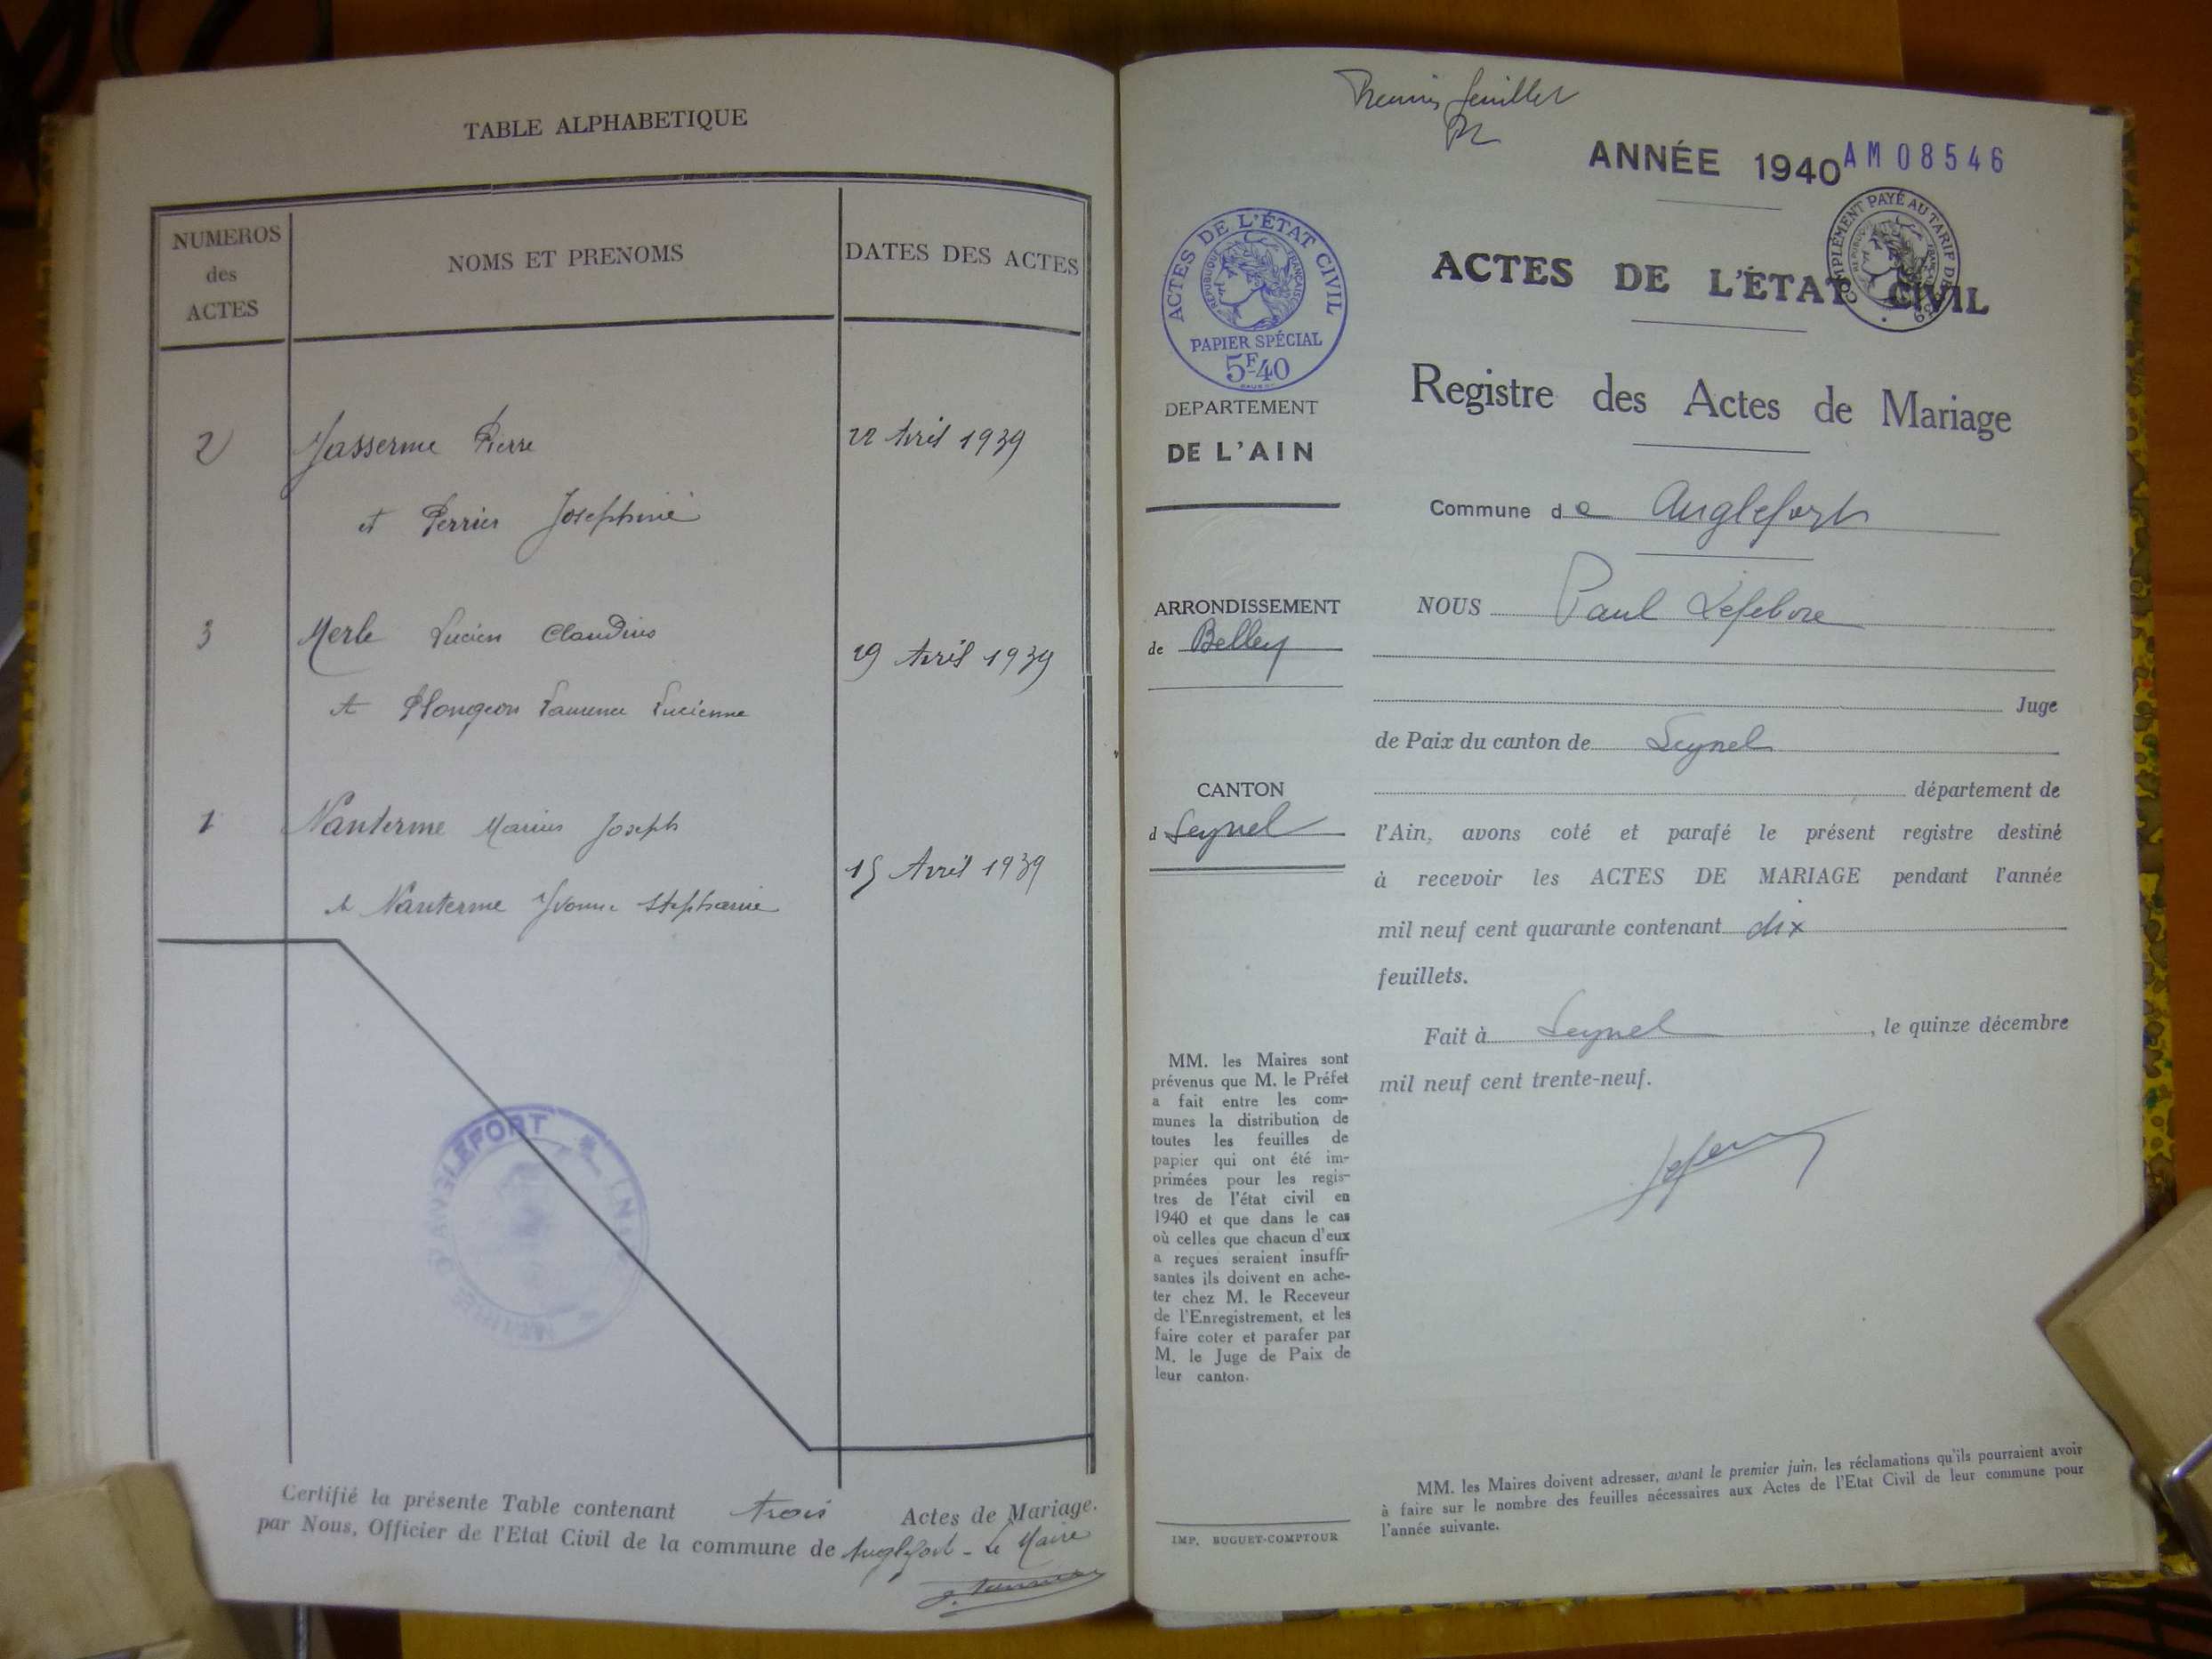 TABLE ALPHABETIQUE
NUMEROS
des
ACTES
NOMS ET PRENOMS
DATES DES ACTES
2 Jasserme Pierre 22 Avril 1939
et Perrier Josephine
3 Merle Lucien Claudius
29 Avril 1939
et Plongeon Laurence Lucienne
1 Nanterme Marius Joseph
15 Avril 1939
et Nanterme Yvonne Stephanie
MAIRIE D'ANGLEFORT
Certifié la présente Table contenant trois Actes de Mariage.
par Nous, Officier de l'Etat Civil de la commune de Anglefort - Le Maire
Premier feuillet
ANNÉE 1940
AM08546
ACTES DE L'ÉTAT CIVIL
RÉPUBLIQUE FRANÇAISE
PAPIER SPÉCIAL
5F40
COMPLÉMENT PAYÉ AU TARIF DE
ACTES DE L'ÉTAT CIVIL
Registre des Actes de Mariage
DEPARTEMENT
DE L'AIN
Commune de Anglefort
ARRONDISSEMENT
de Belley
NOUS Paul Lefebvre
Juge
de Paix du canton de Seyssel
CANTON
d Seyssel
département de
l'Ain, avons coté et parafé le présent registre destiné
à recevoir les ACTES DE MARIAGE pendant l'année
mil neuf cent quarante contenant dix
feuillets.
Fait à Seyssel, le quinze décembre
mil neuf cent trente-neuf.
MM. les Maires sont
prévenus que M. le Préfet
a fait entre les com-
munes la distribution de
toutes les feuilles de
papier qui ont été im-
primées pour les regis-
tres de l'état civil en
1940 et que dans le cas
où celles que chacun d'eux
a reçues seraient insuffi-
santes ils doivent en ache-
ter chez M. le Receveur
de l'Enregistrement, et les
faire coter et parafer par
M. le Juge de Paix de
leur canton.
IMP. BUGUET-COMPTOUR
MM. les Maires doivent adresser, avant le premier juin, les réclamations qu'ils pourraient avoir
à faire sur le nombre des feuilles nécessaires aux Actes de l'Etat Civil de leur commune pour
l'année suivante.